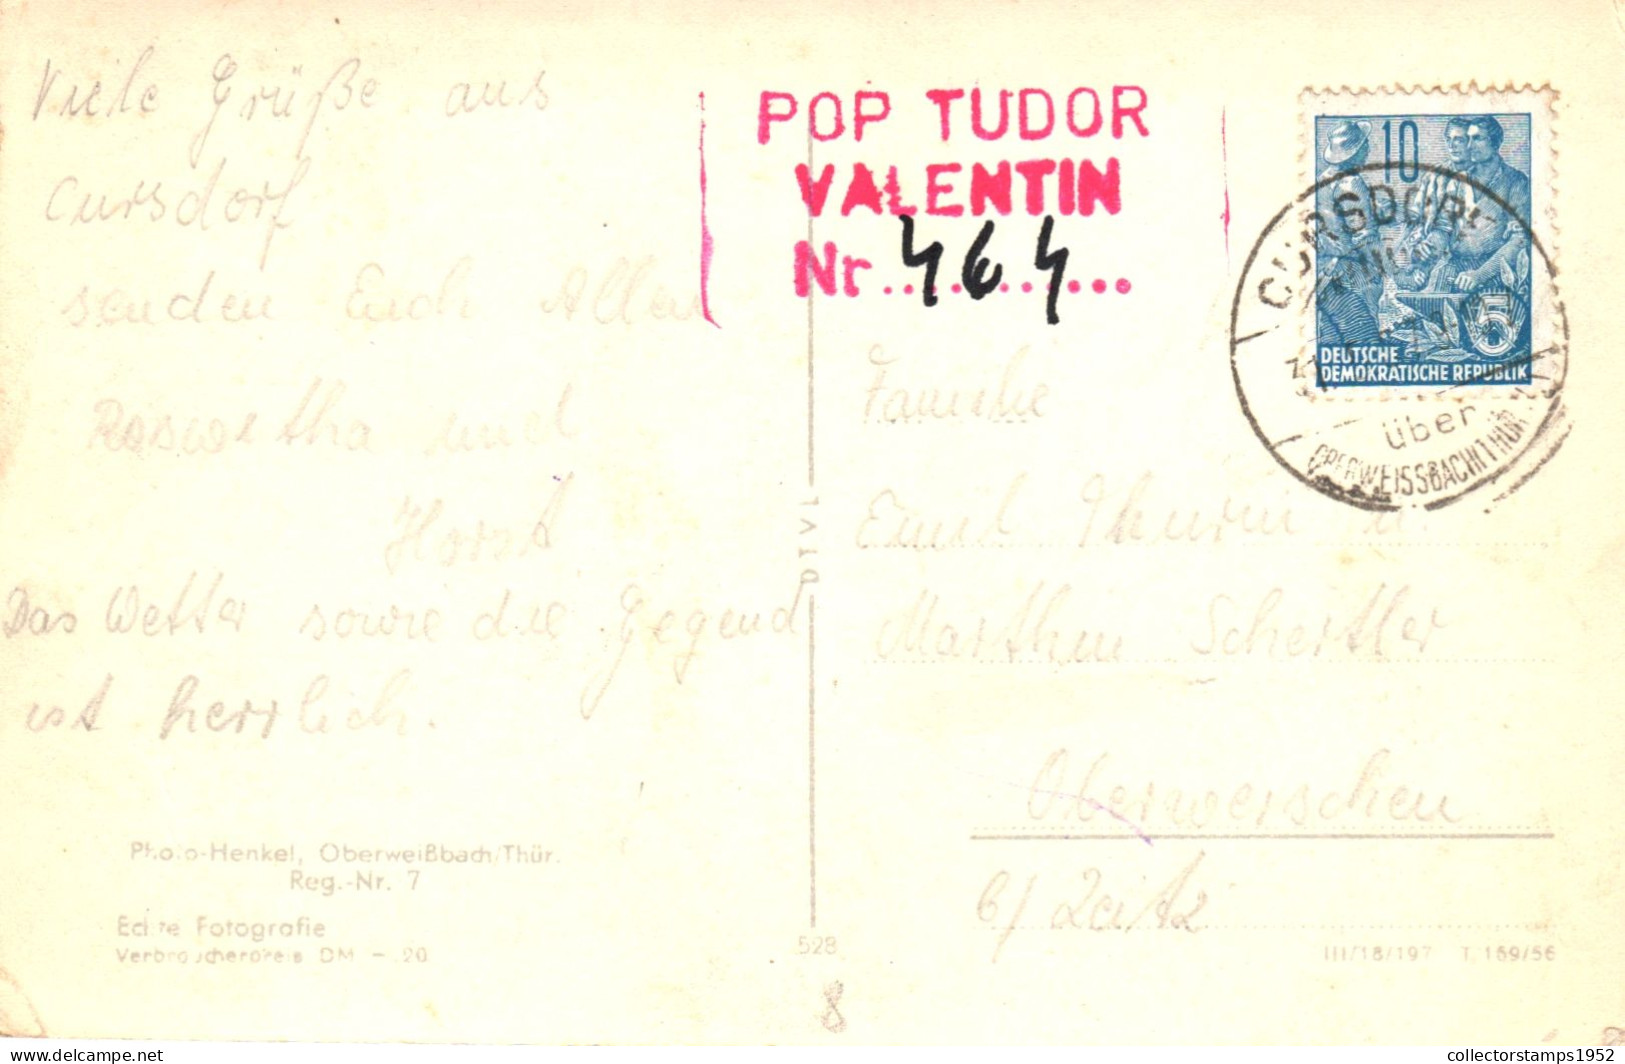 Viele Grüße aus
Cursdorf
senden Euch Allen
Roswitha und
Horst
Das Wetter sowie die Gegend
ist herrlich.
Photo-Henkel, Oberweißbach/Thür.
Reg.-Nr. 7
Echte Fotografie
Verbraucherpreis DM -.20
DTVL
528
8
POP TUDOR
VALENTIN
Nr. 464
10
5
DEUTSCHE
DEMOKRATISCHE REPUBLIK
CURSDORF
über
OBERWEISSBACH (THÜR)
Familie
Emil Thurm u.
Scheitler
Oberwerschen
b/ Zeitz
III/18/197 T. 169/56
collectorstamps1952